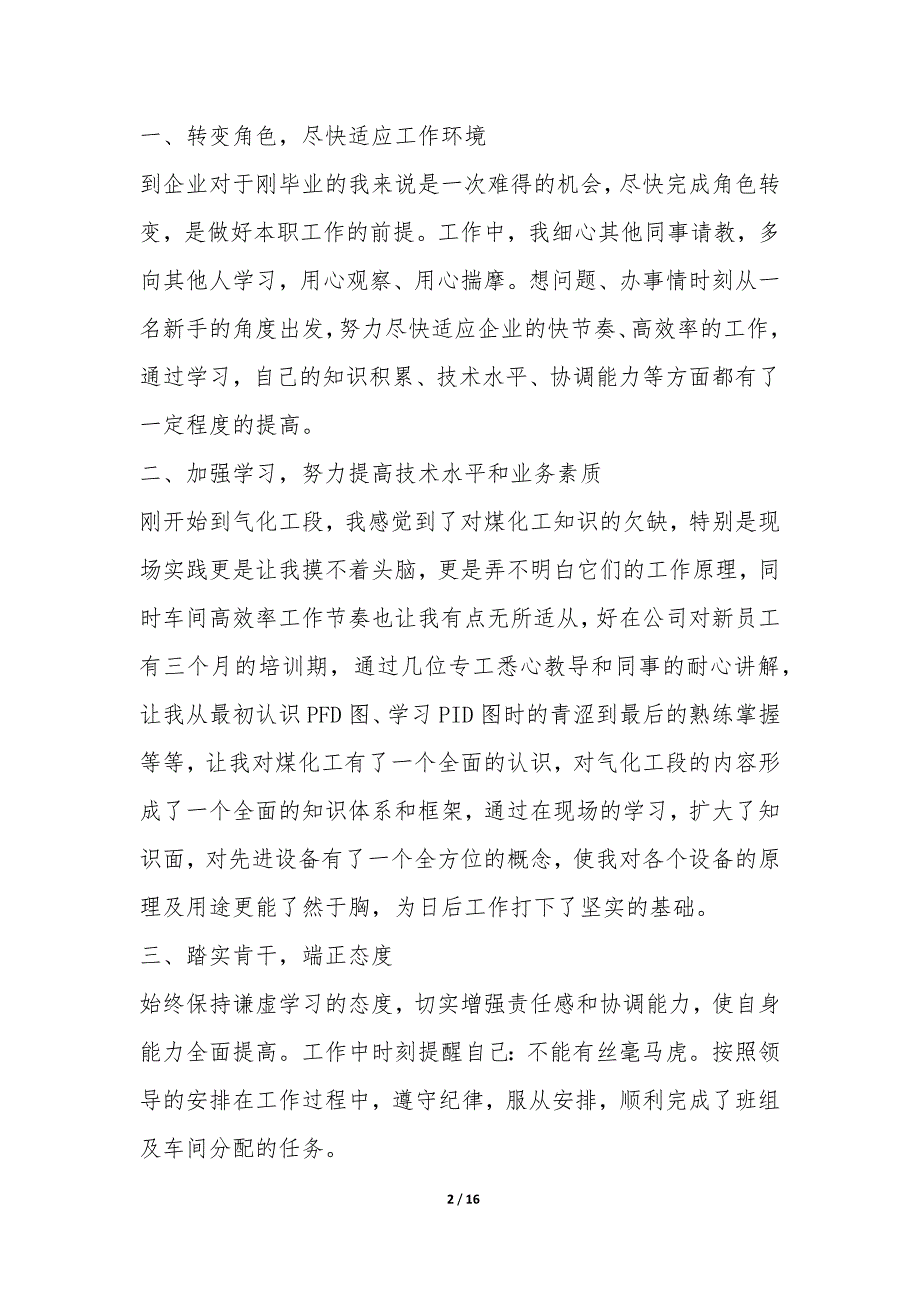 一、转变角色，尽快适应工作环境
到企业对于刚毕业的我来说是一次难得的机会，尽快完成角色转
变，是做好本职工作的前提。工作中，我细心其他同事请教，多
向其他人学习，用心观察、用心揣摩。想问题、办事情时刻从一
名新手的角度出发，努力尽快适应企业的快节奏、高效率的工作，
通过学习，自己的知识积累、技术水平、协调能力等方面都有了
一定程度的提高。
二、加强学习，努力提高技术水平和业务素质
刚开始到气化工段，我感觉到了对煤化工知识的欠缺，特别是现
场实践更是让我摸不着头脑，更是弄不明白它们的工作原理，同
时车间高效率工作节奏也让我有点无所适从，好在公司对新员工
有三个月的培训期，通过几位专工悉心教导和同事的耐心讲解，
让我从最初认识 PFD 图、学习 PID 图时的青涩到最后的熟练掌握
等等，让我对煤化工有了一个全面的认识，对气化工段的内容形
成了一个全面的知识体系和框架，通过在现场的学习，扩大了知
识面，对先进设备有了一个全方位的概念，使我对各个设备的原
理及用途更能了然于胸，为日后工作打下了坚实的基础。
三、踏实肯干，端正态度
始终保持谦虚学习的态度，切实增强责任感和协调能力，使自身
能力全面提高。工作中时刻提醒自己：不能有丝毫马虎。按照领
导的安排在工作过程中，遵守纪律，服从安排，顺利完成了班组
及车间分配的任务。
2 / 16